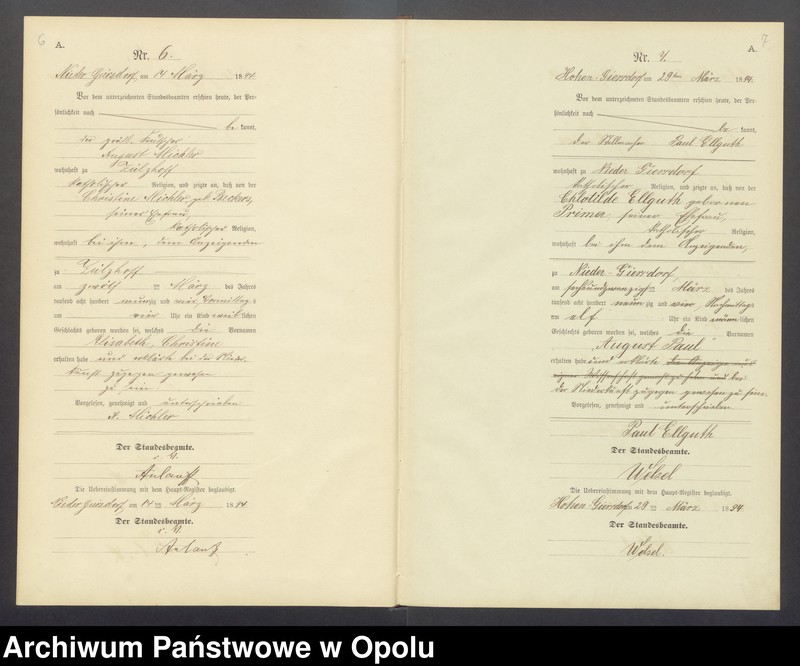 6
A.
Nr. 6.
Nieder Giersdorf, am 14 März 1894.
Vor dem unterzeichneten Standesbeamten erschien heute, der Per-
sönlichkeit nach
be kannt,
der Kutscher
August Michler
wohnhaft zu Zülzhoff
katholischer Religion, und zeigte an, daß von der
Christine Michler geb. Beckers,
seiner Ehefrau,
katholischer Religion,
wohnhaft bei ihm, dem Anzeigenden
zu Zülzhoff
am zwölften März des Jahres
tausend acht hundert neunzig und vier, Vormittags
um vier Uhr ein Kind weiblichen
Geschlechts geboren worden sei, welches die Vornamen
Elisabeth, Christine
erhalten habe und erklärte bei der Nieder-
kunft zugegen gewesen
zu sein
Vorgelesen, genehmigt und unterschrieben
A. Michler
Der Standesbeamte.
i. V.
Anlauff
Die Uebereinstimmung mit dem Haupt-Register beglaubigt.
Nieder Giersdorf am 14 ten März 1894
Der Standesbeamte.
i. V.
Anlauff
7
A.
Nr. 7.
Hohen-Giersdorf am 29ten März 1894.
Vor dem unterzeichneten Standesbeamten erschien heute, der Per-
sönlichkeit nach
be kannt,
der Paul Ellguth
wohnhaft zu Nieder Giersdorf
katholischer Religion, und zeigte an, daß von der
Chlotilde Ellguth gebornen
Primer, seiner Ehefrau,
katholischer Religion,
wohnhaft bei ihm dem Anzeigenden,
zu Nieder-Giersdorf,
am sechsundzwanzigsten März des Jahres
tausend acht hundert neunzig und vier, Nachmittags
um elf Uhr ein Kind männlichen
Geschlechts geboren worden sei, welches die Vornamen
"August Paul"
erhalten habe und erklärte die Anzeige aus
eigner Wissenschaft gemacht zu haben und bei
der Niederkunft zugegen gewesen zu sein.
Vorgelesen, genehmigt und unterschrieben
Paul Ellguth
Der Standesbeamte.
Welzel
Die Uebereinstimmung mit dem Haupt-Register beglaubigt.
Hohen-Giersdorf 29 ten März 1894.
Der Standesbeamte.
Welzel.
Archiwum Państwowe w Opolu